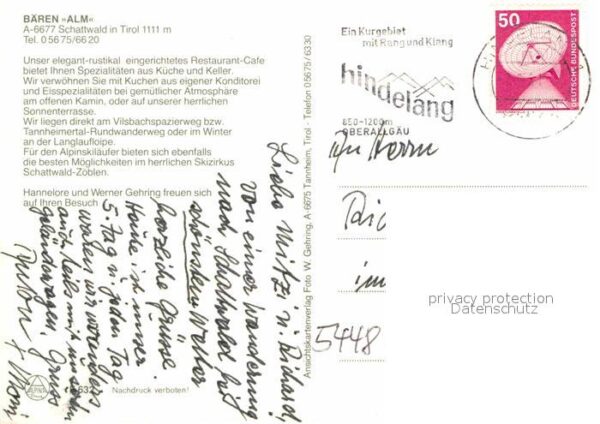 BÄREN »ALM«
A-6677 Schattwald in Tirol 1111 m
Tel. 0 56 75/66 20
Unser elegant-rustikal eingerichtetes Restaurant-Cafe
bietet Ihnen Spezialitäten aus Küche und Keller.
Wir verwöhnen Sie mit Kuchen aus eigener Konditorei
und Eisspezialitäten bei gemütlicher Atmosphäre
am offenen Kamin, oder auf unserer herrlichen
Sonnenterrasse.
Wir liegen direkt am Vilsbachspazierweg bzw.
Tannheimertal-Rundwanderweg oder im Winter
an der Langlaufloipe.
Für den Alpinskiläufer bieten sich ebenfalls
die besten Möglichkeiten im herrlichen Skizirkus
Schattwald-Zöblen.
Hannelore und Werner Gehring freuen sich
auf Ihren Besuch
632
Nachdruck verboten!
Liebe Mitzi u. Richard,
von einer Wanderung
nach Schattwald bei
schönstem Wetter
herzliche Grüsse
Heute ist unser
5. Tag u. jeden Tag
waren wir wandern
auch teils mit unserem
Geländewagen. Gruss
Anton + Moni
Ansichtskartenverlag Foto W. Gehring, A-6675 Tannheim, Tirol - Telefon 0 56 75/6330
Ein Kurgebiet
mit Rang und Klang
hindelang
850-1200m
OBERALLGÄU
50
DEUTSCHE BUNDESPOST
Herrn
Ric
im
5448
privacy protection
Datenschutz